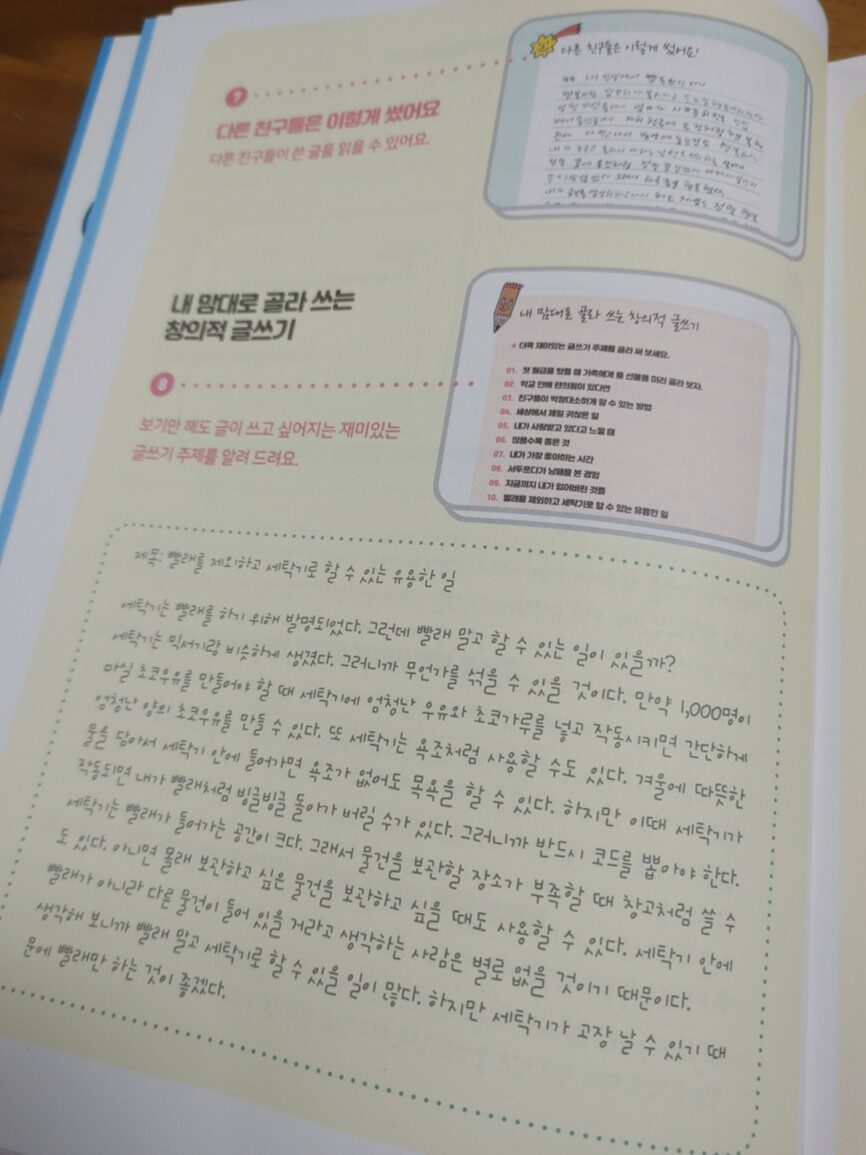 7
다른 친구들은 이렇게 썼어요
다른 친구들이 쓴 글을 읽을 수 있어요.
다른 친구들은 이렇게 썼어요!
내 맘대로 골라 쓰는
창의적 글쓰기
8
보기만 해도 글이 쓰고 싶어지는 재미있는
글쓰기 주제를 알려 드려요.
내 맘대로 골라 쓰는 창의적 글쓰기
★ 더욱 재미있는 글쓰기 주제를 골라 써 보세요.
01. 첫 월급을 탔을 때 가족에게 줄 선물을 미리 골라 보자.
02. 학교 안에 편의점이 있다면
03. 친구들이 박장대소하게 할 수 있는 방법
04. 세상에서 제일 귀찮은 일
05. 내가 사랑받고 있다고 느낄 때
06. 많을수록 좋은 것
07. 내가 가장 좋아하는 시간
08. 서두르다가 낭패를 본 경험
09. 지금까지 내가 잃어버린 것들
10. 빨래를 제외하고 세탁기로 할 수 있는 유용한 일
제목: 빨래를 제외하고 세탁기로 할 수 있는 유용한 일
세탁기는 빨래를 하기 위해 발명되었다. 그런데 빨래 말고 할 수 있는 일이 있을까?
세탁기는 믹서기랑 비슷하게 생겼다. 그러니까 무언가를 섞을 수 있을 것이다. 만약 1,000명이
마실 초코우유를 만들어야 할 때 세탁기에 엄청난 우유와 초코가루를 넣고 작동시키면 간단하게
엄청난 양의 초코우유를 만들 수 있다. 또 세탁기는 욕조처럼 사용할 수도 있다. 겨울에 따뜻한
물을 담아서 세탁기 안에 들어가면 욕조가 없어도 목욕을 할 수 있다. 하지만 이때 세탁기가
작동되면 내가 빨래처럼 빙글빙글 돌아가 버릴 수가 있다. 그러니까 반드시 코드를 뽑아야 한다.
세탁기는 빨래가 들어가는 공간이 크다. 그래서 물건을 보관할 장소가 부족할 때 창고처럼 쓸 수
도 있다. 아니면 몰래 보관하고 싶은 물건을 보관하고 싶을 때도 사용할 수 있다. 세탁기 안에
빨래가 아니라 다른 물건이 들어 있을 거라고 생각하는 사람은 별로 없을 것이기 때문이다.
생각해 보니까 빨래 말고 세탁기로 할 수 있을 일이 많다. 하지만 세탁기가 고장 날 수 있기 때
문에 빨래만 하는 것이 좋겠다.